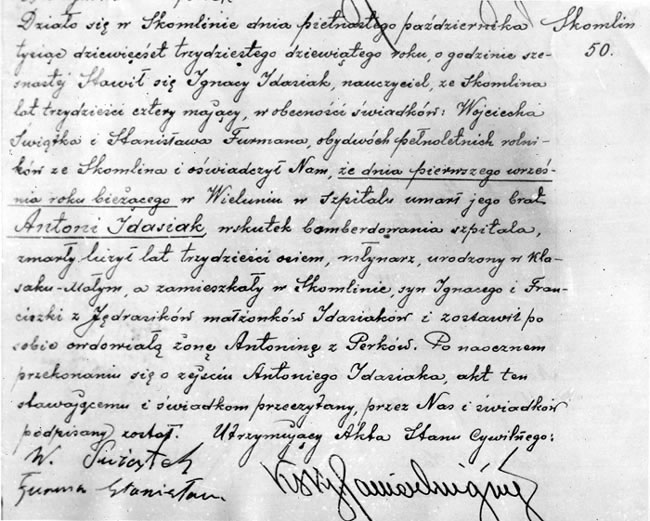 Działo się w Skomlinie dnia piętnastego października
Skomlin
50.
tysiąc dziewięćset trzydziestego dziewiątego roku, o godzinie sze-
snastej Stawił się Ignacy Idasiak, nauczyciel, ze Skomlina
lat trzydzieści cztery mający, w obecności świadków: Wojciecha
Świątka i Stanisława Furmana, obydwóch pełnoletnich rolni-
ków ze Skomlina i oświadczył Nam, że dnia pierwszego wrześ-
nia roku bieżacego w Wieluniu w szpitalu umarł jego brat
Antoni Idasiak, wskutek bomberdowania szpitala,
zmarły liczył lat trzydzieści osiem, młynarz, urodzony w Kła-
saku-Małym, a zamieszkały w Skomlinie, syn Ignacego i Fran-
ciszki z Jędrasików małżonków Idasiaków i zostawił po
sobie owdowiałą żonę Antoninę z Perków. Po naocznem
przekonaniu się o zejściu Antoniego Idasiaka, akt ten
stawającemu i świadkom przeczytany, przez Nas i świadków
podpisany został. Utrzymujący Akta Stanu Cywilnego:
W. Świątek
Furman Stanisław